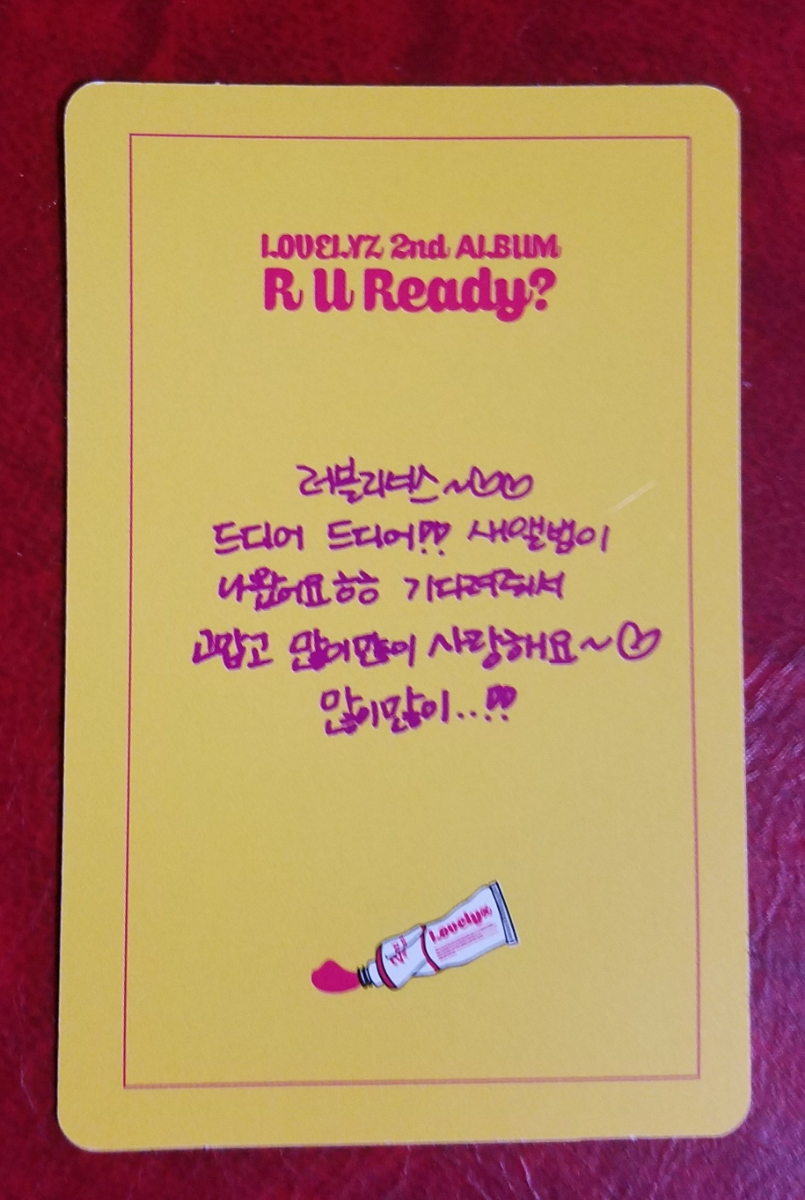 LOVELYZ 2nd ALBUM
R U Ready?
러블리너스~♡♡
드디어 드디어!! 새앨범이
나왔어요ㅎㅎ 기다려줘서
고맙고 많이많이 사랑해요~♡
많이많이..!!
Lovelyz